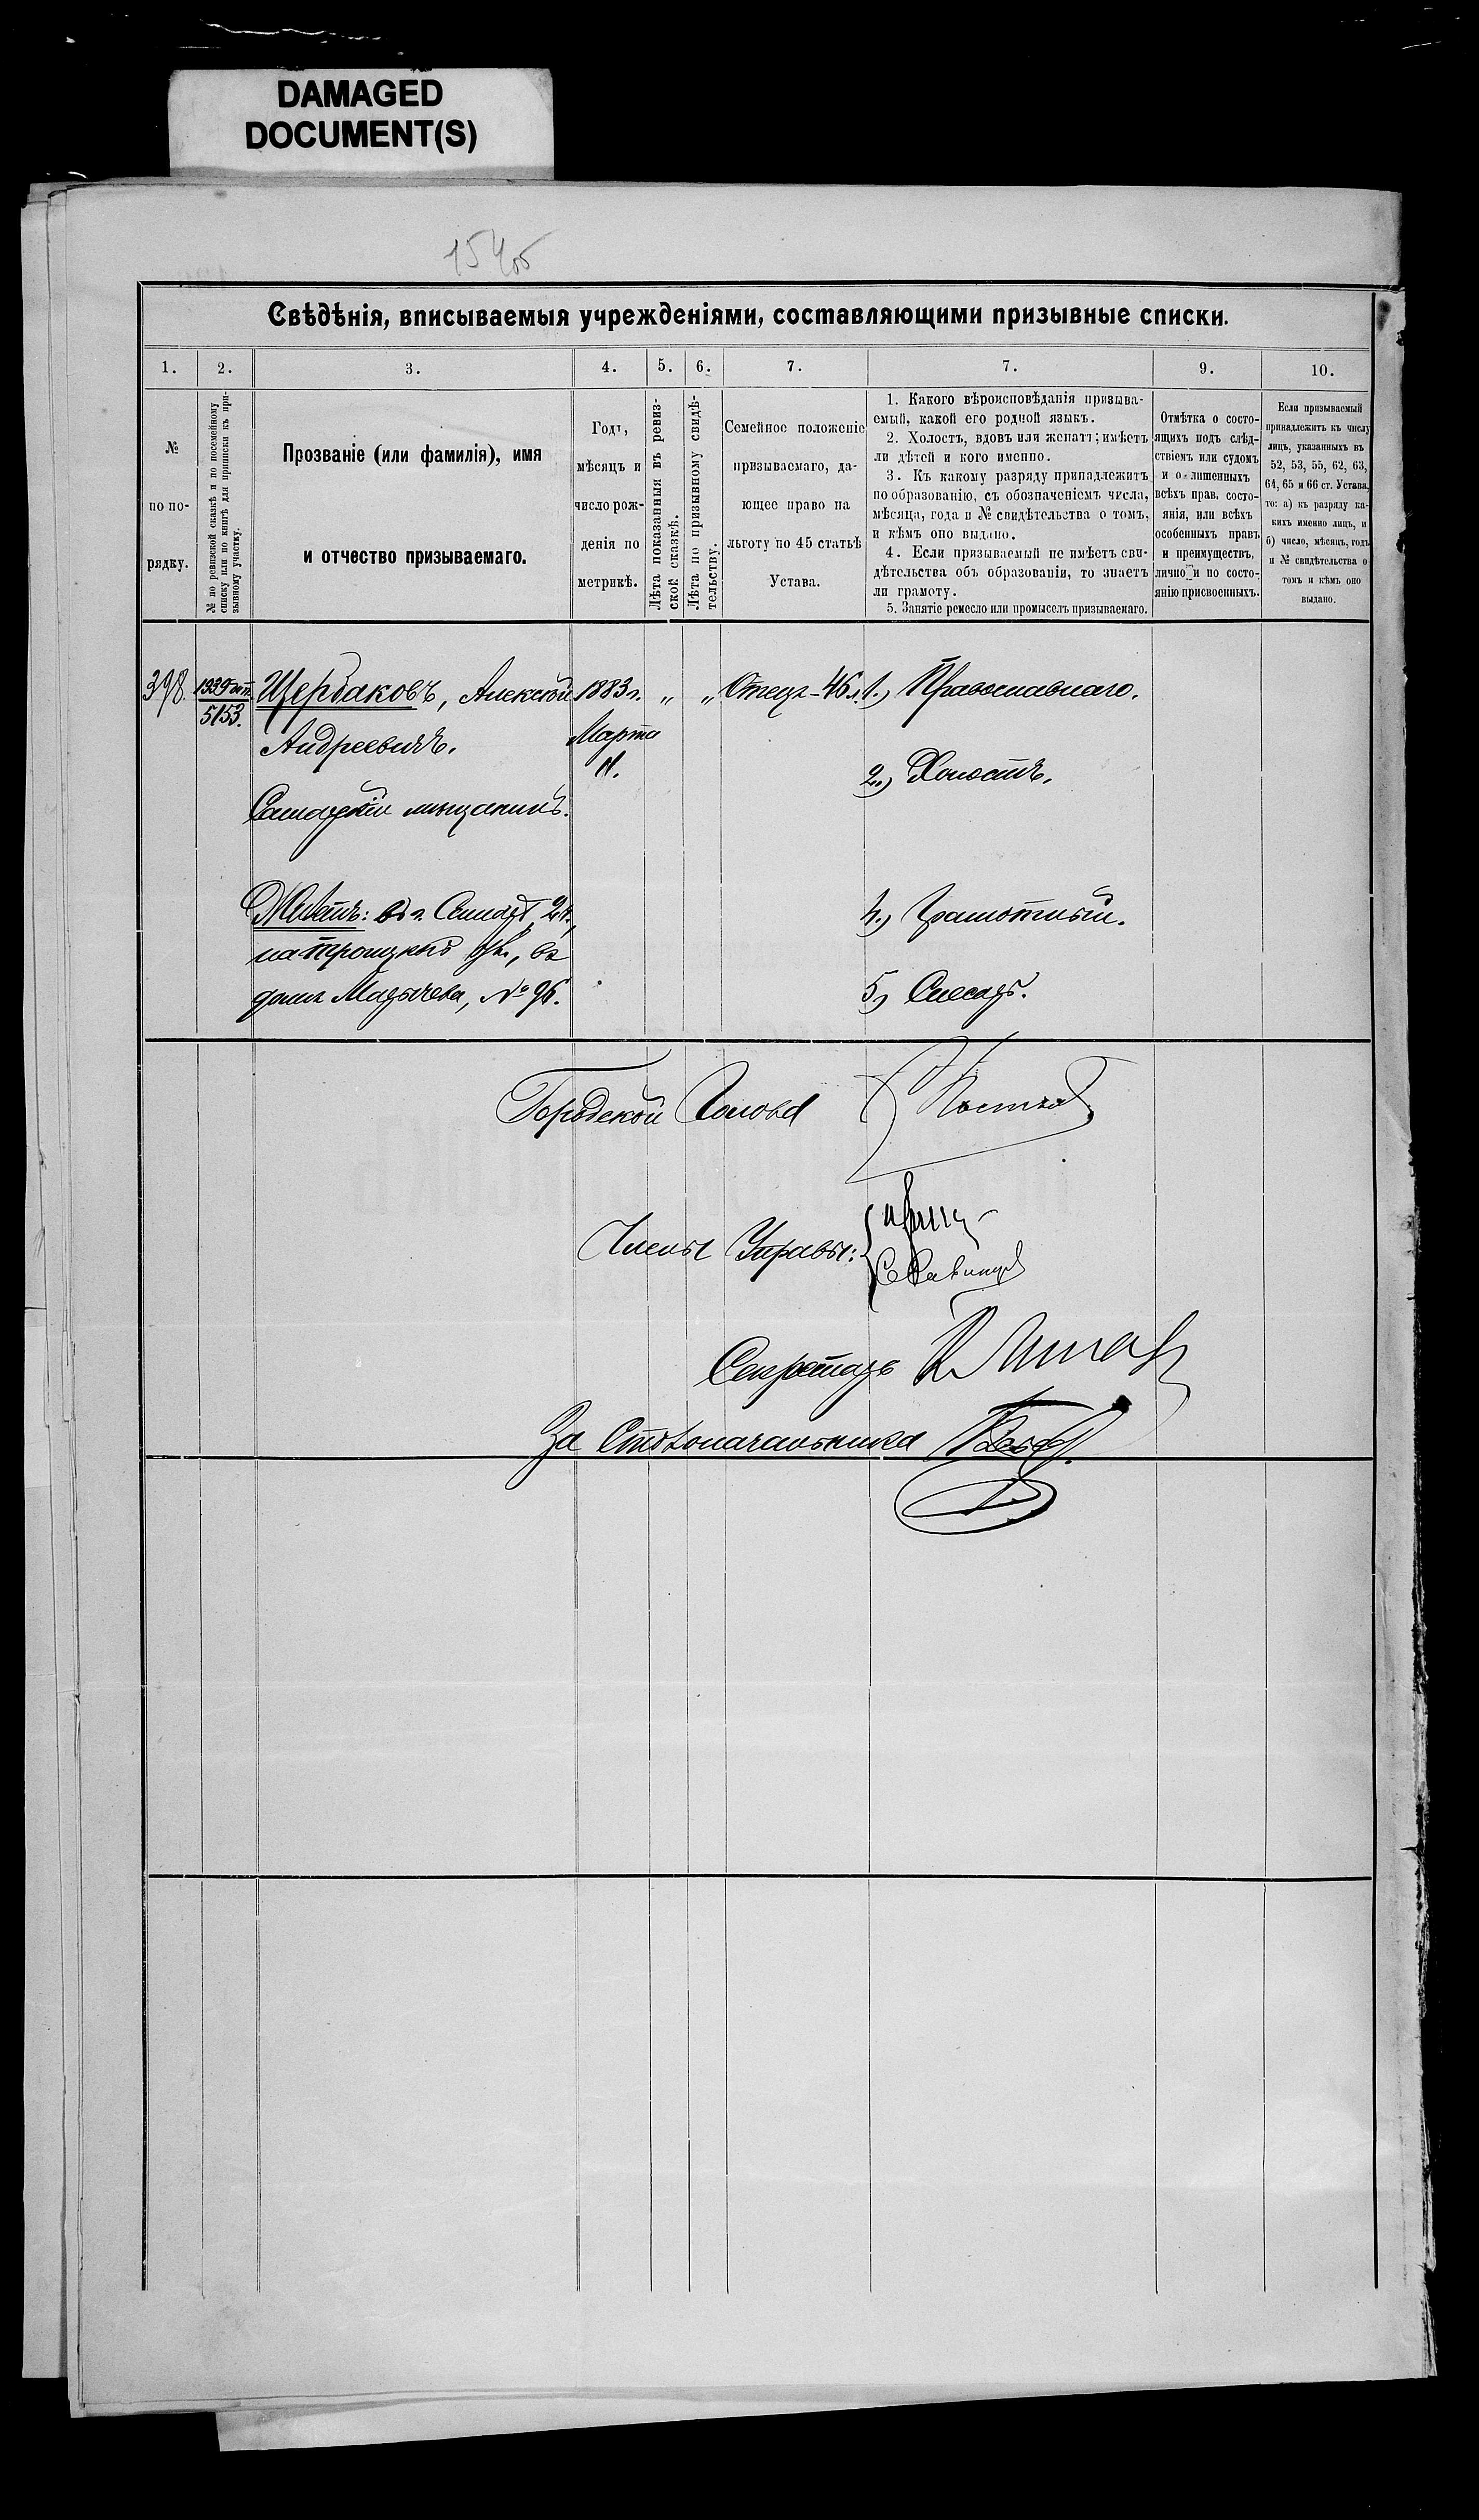 DAMAGED
DOCUMENT(S)
154об
Свѣдѣнія, вписываемыя учрежденіями, составляющими призывные списки.
1.
2.
3.
4.
5.
6.
7.
7.
9.
10.
№
по по-
рядку.
№ по ревизской сказкѣ и по посемейному
списку или по книгѣ для приписки къ при-
зывному участку.
Прозваніе (или фамилія), имя
и отчество призываемаго.
Годъ,
мѣсяцъ и
число рож-
денія по
метрикѣ.
Лѣта показанныя въ ревиз-
ской сказкѣ.
Лѣта по призывному свидѣ-
тельству.
Семейное положеніе
призываемаго, да-
ющее право на
льготу по 45 статьѣ
Устава.
1. Какого вѣроисповѣданія призыва-
емый, какой его родной языкъ.
2. Холостъ, вдовъ или женатъ; имѣетъ
ли дѣтей и кого именно.
3. Къ какому разряду принадлежитъ
по образованію, съ обозначеніемъ числа,
мѣсяца, года и № свидѣтельства о томъ,
и кѣмъ оно выдано.
4. Если призываемый не имѣетъ сви-
дѣтельства объ образованіи, то знаетъ
ли грамоту.
5. Занятіе ремесло или промыселъ призываемаго.
Отмѣтка о состо-
ящихъ подъ слѣд-
ствіемъ или судомъ
и о лишенныхъ
всѣхъ прав. состо-
янія, или всѣхъ
особенныхъ правъ
и преимуществъ,
лично и по состо-
янію присвоенныхъ.
Если призываемый
принадлежитъ къ числу
лицъ, указанныхъ въ
52, 53, 55, 62, 63,
64, 65 и 66 ст. Устава,
то: а) къ разряду ка-
кихъ именно лицъ, и
б) число, мѣсяцъ, годъ
и № свидѣтельства о
томъ и кѣмъ оно
выдано.
398. 1939
5153.
Щербаковъ, Алексѣй
Андреевичъ.
Самарскій мѣщанинъ.
Живетъ: въ г. Самарѣ 2ч.,
на Троицкой ул., въ
домѣ №96.
1883г.
Марта
11.
„
„
Отецъ-46л.
1.) Православнаго.
2.) Холостъ.
4.) Грамотный.
5) Слесарь.
Городской Голова
Члены Управы:
Секретарь
За Столоначальника